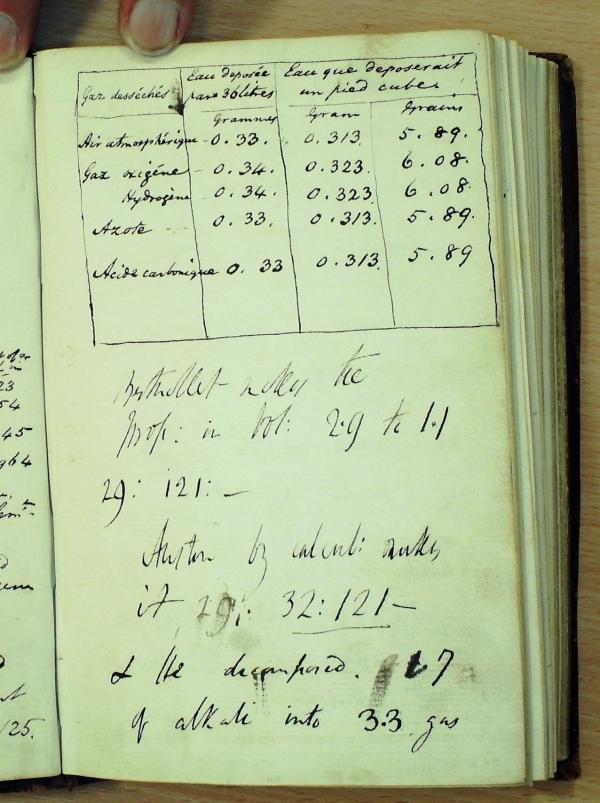 Gaz desséchés | Eau deposée par 36 litres | Eau que deposerait un pied cube
Grammes | Gram | Grains
Air atmosphérique 0.33. 0.313. 5.89.
Gaz oxigéne 0.34. 0.323. 6.08.
Hydrogène 0.34. 0.323 6.08.
Azote 0.33. 0.313. 5.89.
Acide carbonique 0.33 0.313. 5.89
Berthollet makes the
Prop: in Vol: 2.9 to 1.1
29: 121: —
Austen by calcul: makes
it 29: 32:121 —
& He decomposed. 1.7
of alkali into 3.3 gas
23
54
45
964
125.